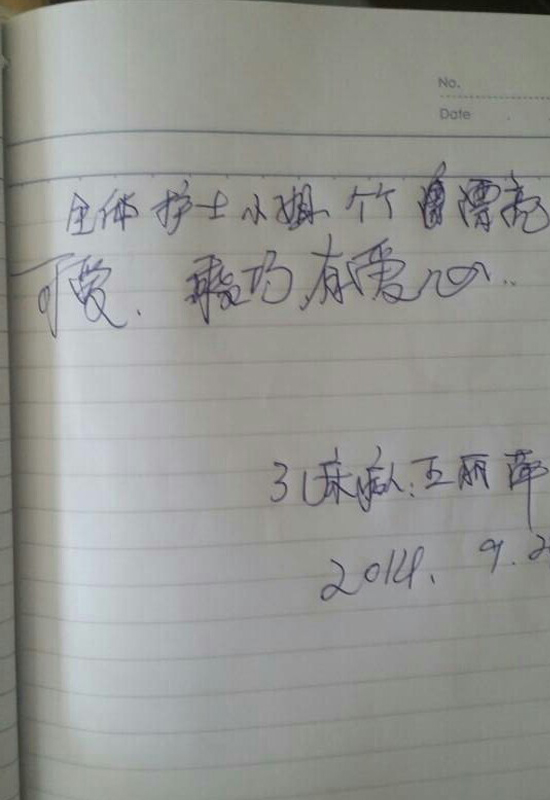 No.
Date
全体护士小姐个漂亮
可爱. 巧,有爱心..
31床病人:王丽萍
2014. 9.2